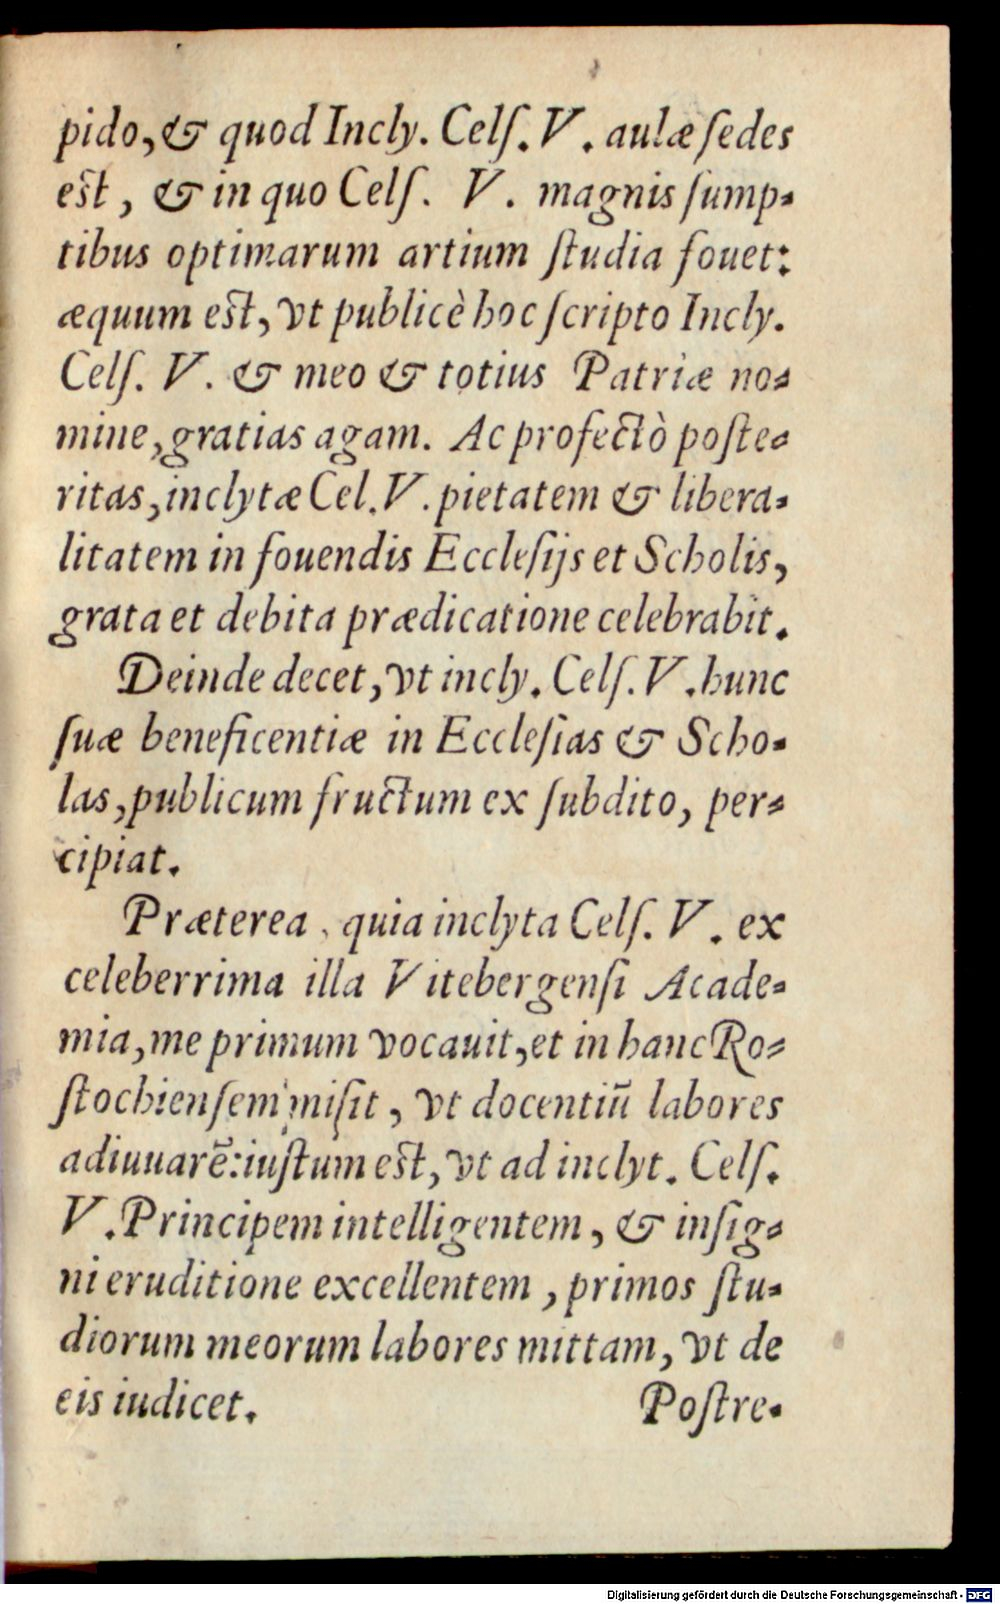 pido, & quod Incly. Celſ. V. aulæ ſedes
est, & in quo Celſ. V. magnis ſump-
tibus optimarum artium ſtudia fouet:
æquum est, vt publicè hoc ſcripto Incly.
Celſ. V. & meo & totius Patriæ no-
mine, gratias agam. Ac profectò poſte-
ritas, inclytæ Cel. V. pietatem & libera-
litatem in fouendis Eccleſijs et Scholis,
grata et debita prædicatione celebrabit.
Deinde decet, vt incly. Celſ. V. hunc
ſuæ beneficentiæ in Eccleſias & Scho-
las, publicum fructum ex ſubdito, per-
cipiat.
Præterea, quia inclyta Celſ. V. ex
celeberrima illa Vitebergenſi Acade-
mia, me primum vocauit, et in hanc Ro-
ſtochienſem miſit, vt docentiũ labores
adiuuarẽ: iuſtum est, vt ad inclyt. Celſ.
V. Principem intelligentem, & inſig-
ni eruditione excellentem, primos ſtu-
diorum meorum labores mittam, vt de
eis iudicet. Poſtre-
Digitalisierung gefördert durch die Deutsche Forschungsgemeinschaft - DFG